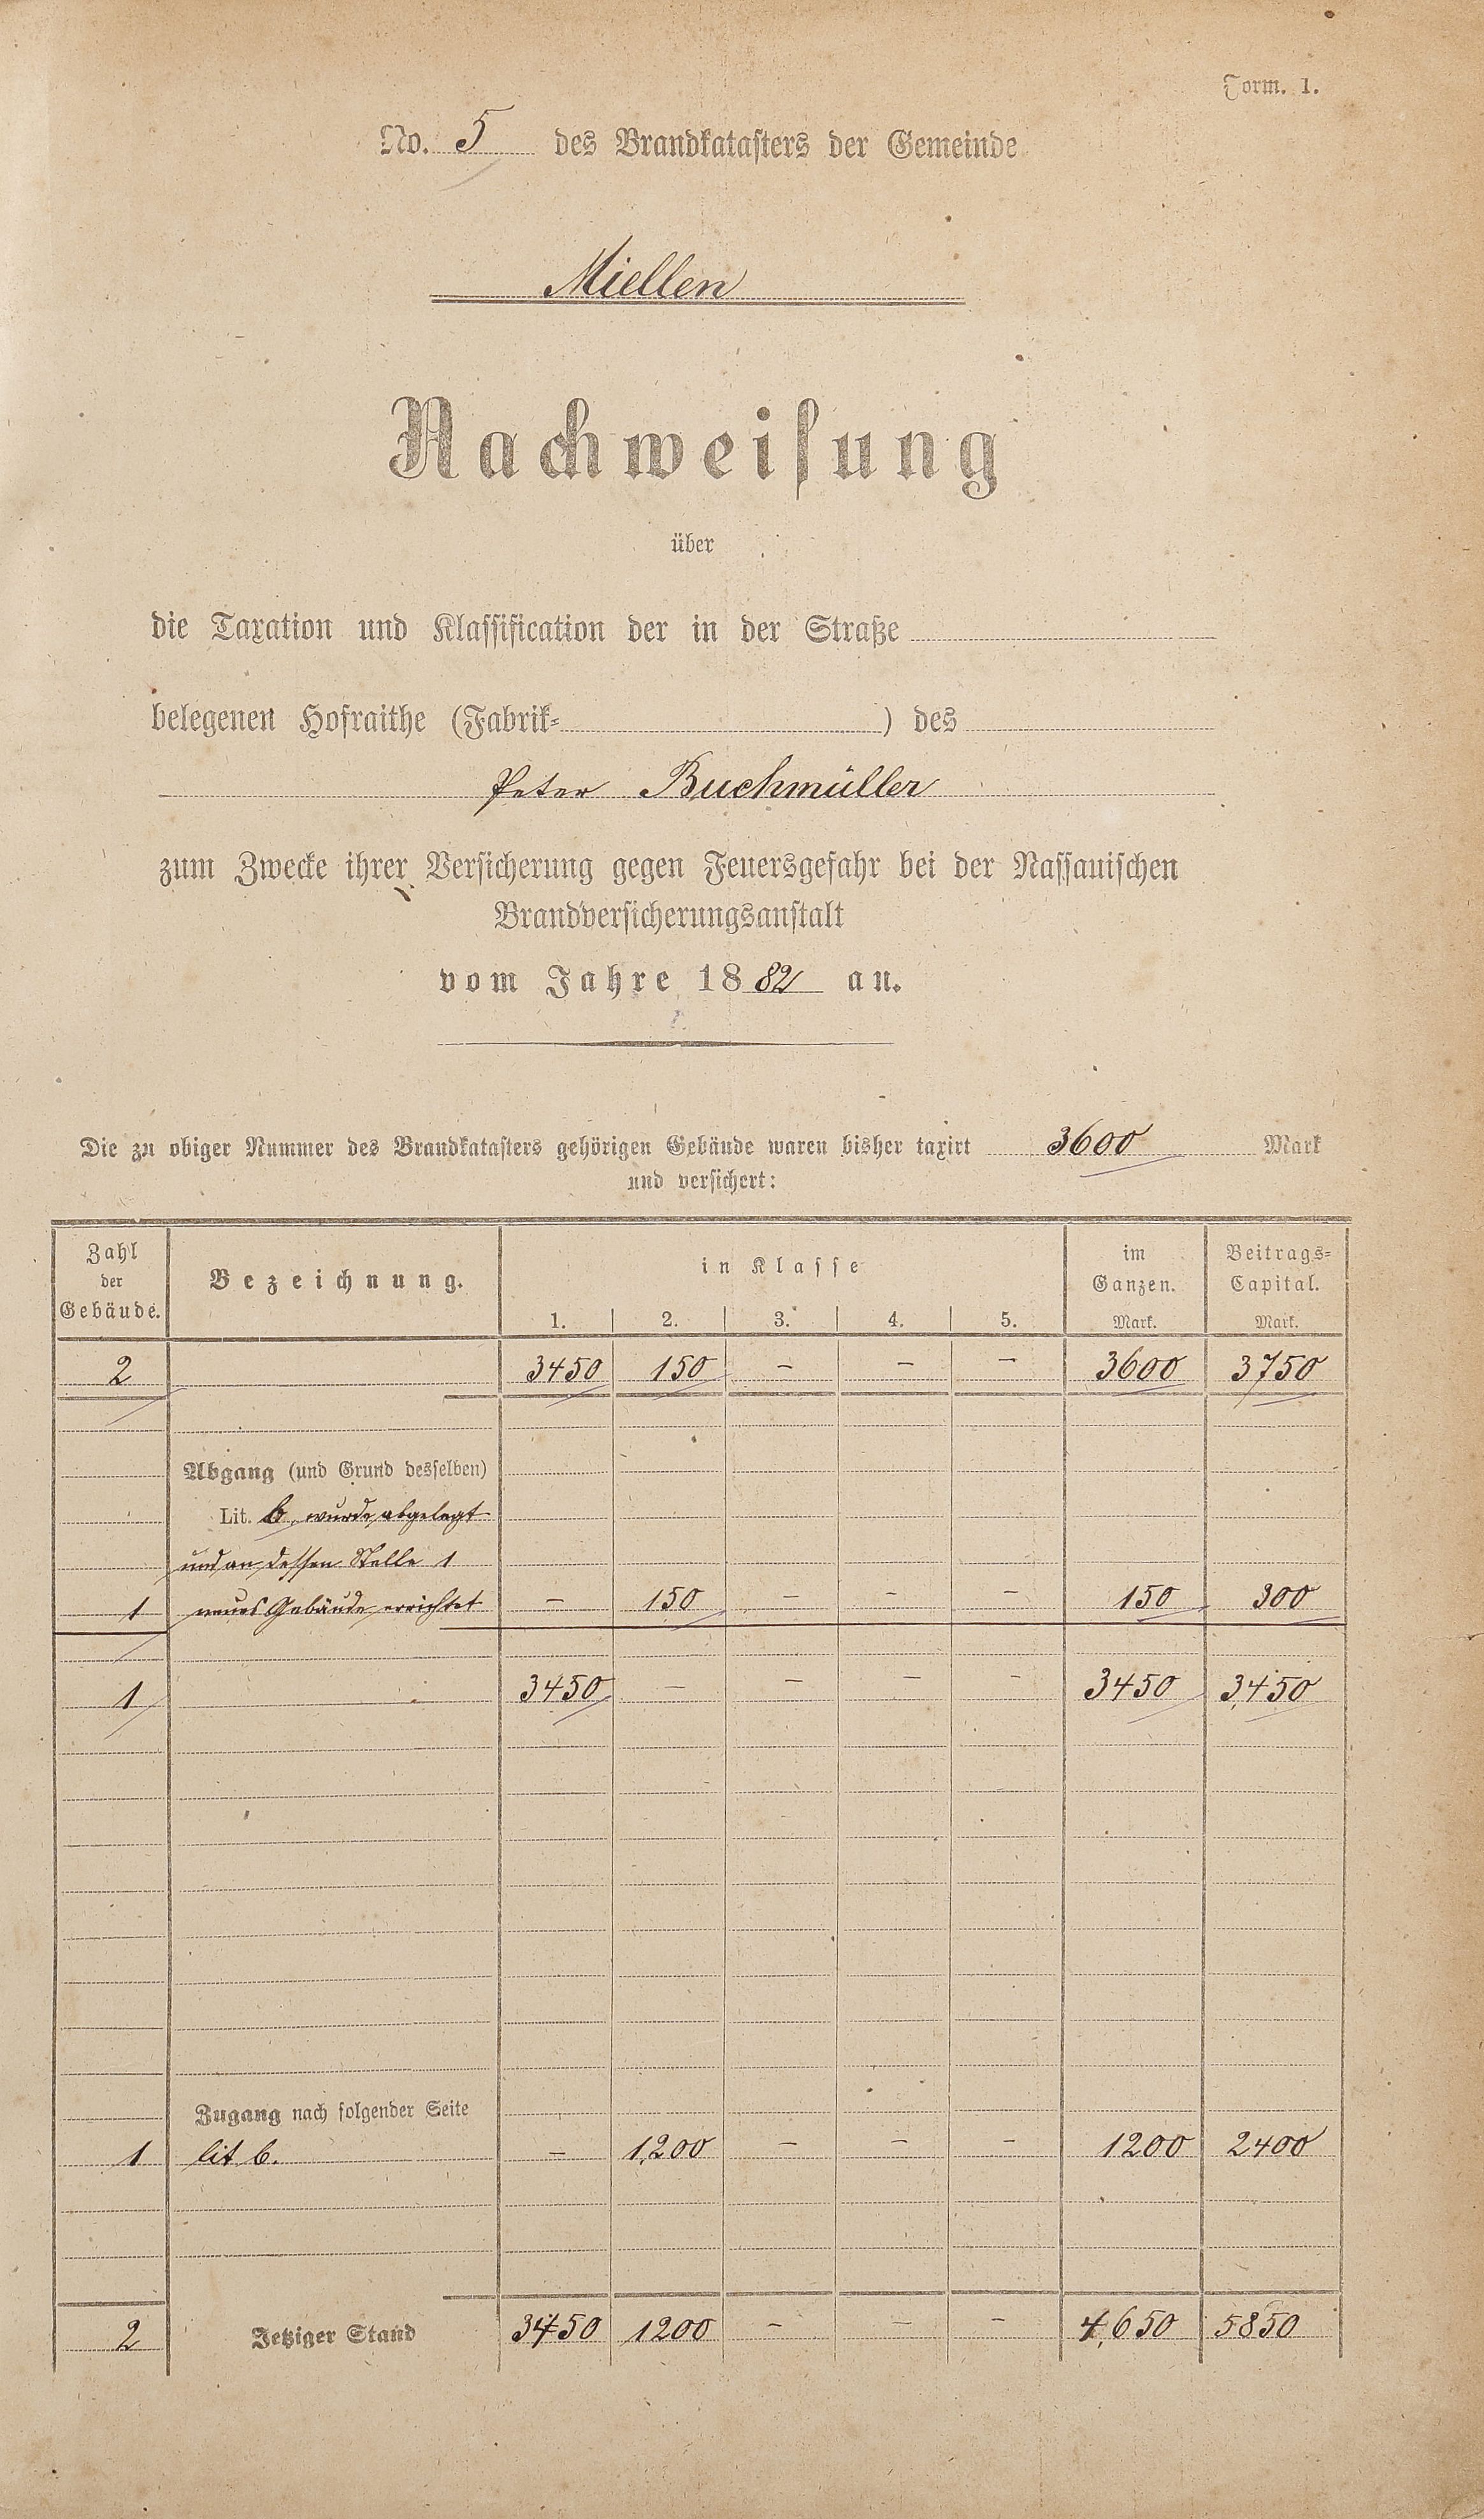 Form. 1.
No. 5 des Brandkatasters der Gemeinde
Miellen
Nachweisung
über
die Taxation und Klassification der in der Straße
belegenen Hofraithe (Fabrik- ) des
Peter Buchmüller
zum Zwecke ihrer Versicherung gegen Feuersgefahr bei der Nassauischen
Brandversicherungsanstalt
vom Jahre 1882 an.
Die zu obiger Nummer des Brandkatasters gehörigen Gebäude waren bisher taxirt 3600 Mark
und versichert:
Zahl der Gebäude. Bezeichnung. in Klasse im Ganzen. Beitrags-Capital.
1. 2. 3. 4. 5. Mark. Mark.
2 3450 150 – – – 3600 3750
Abgang (und Grund desselben)
Lit. b. wurde abgelegt
und an dessen Stelle 1
1 neues Gebäude errichtet – 150 – – – 150 300
1 3450 – – – – 3450 3450
Zugang nach folgender Seite
1 lit b. – 1200 – – – 1200 2400
2 Jetziger Stand 3450 1200 – – – 4650 5850